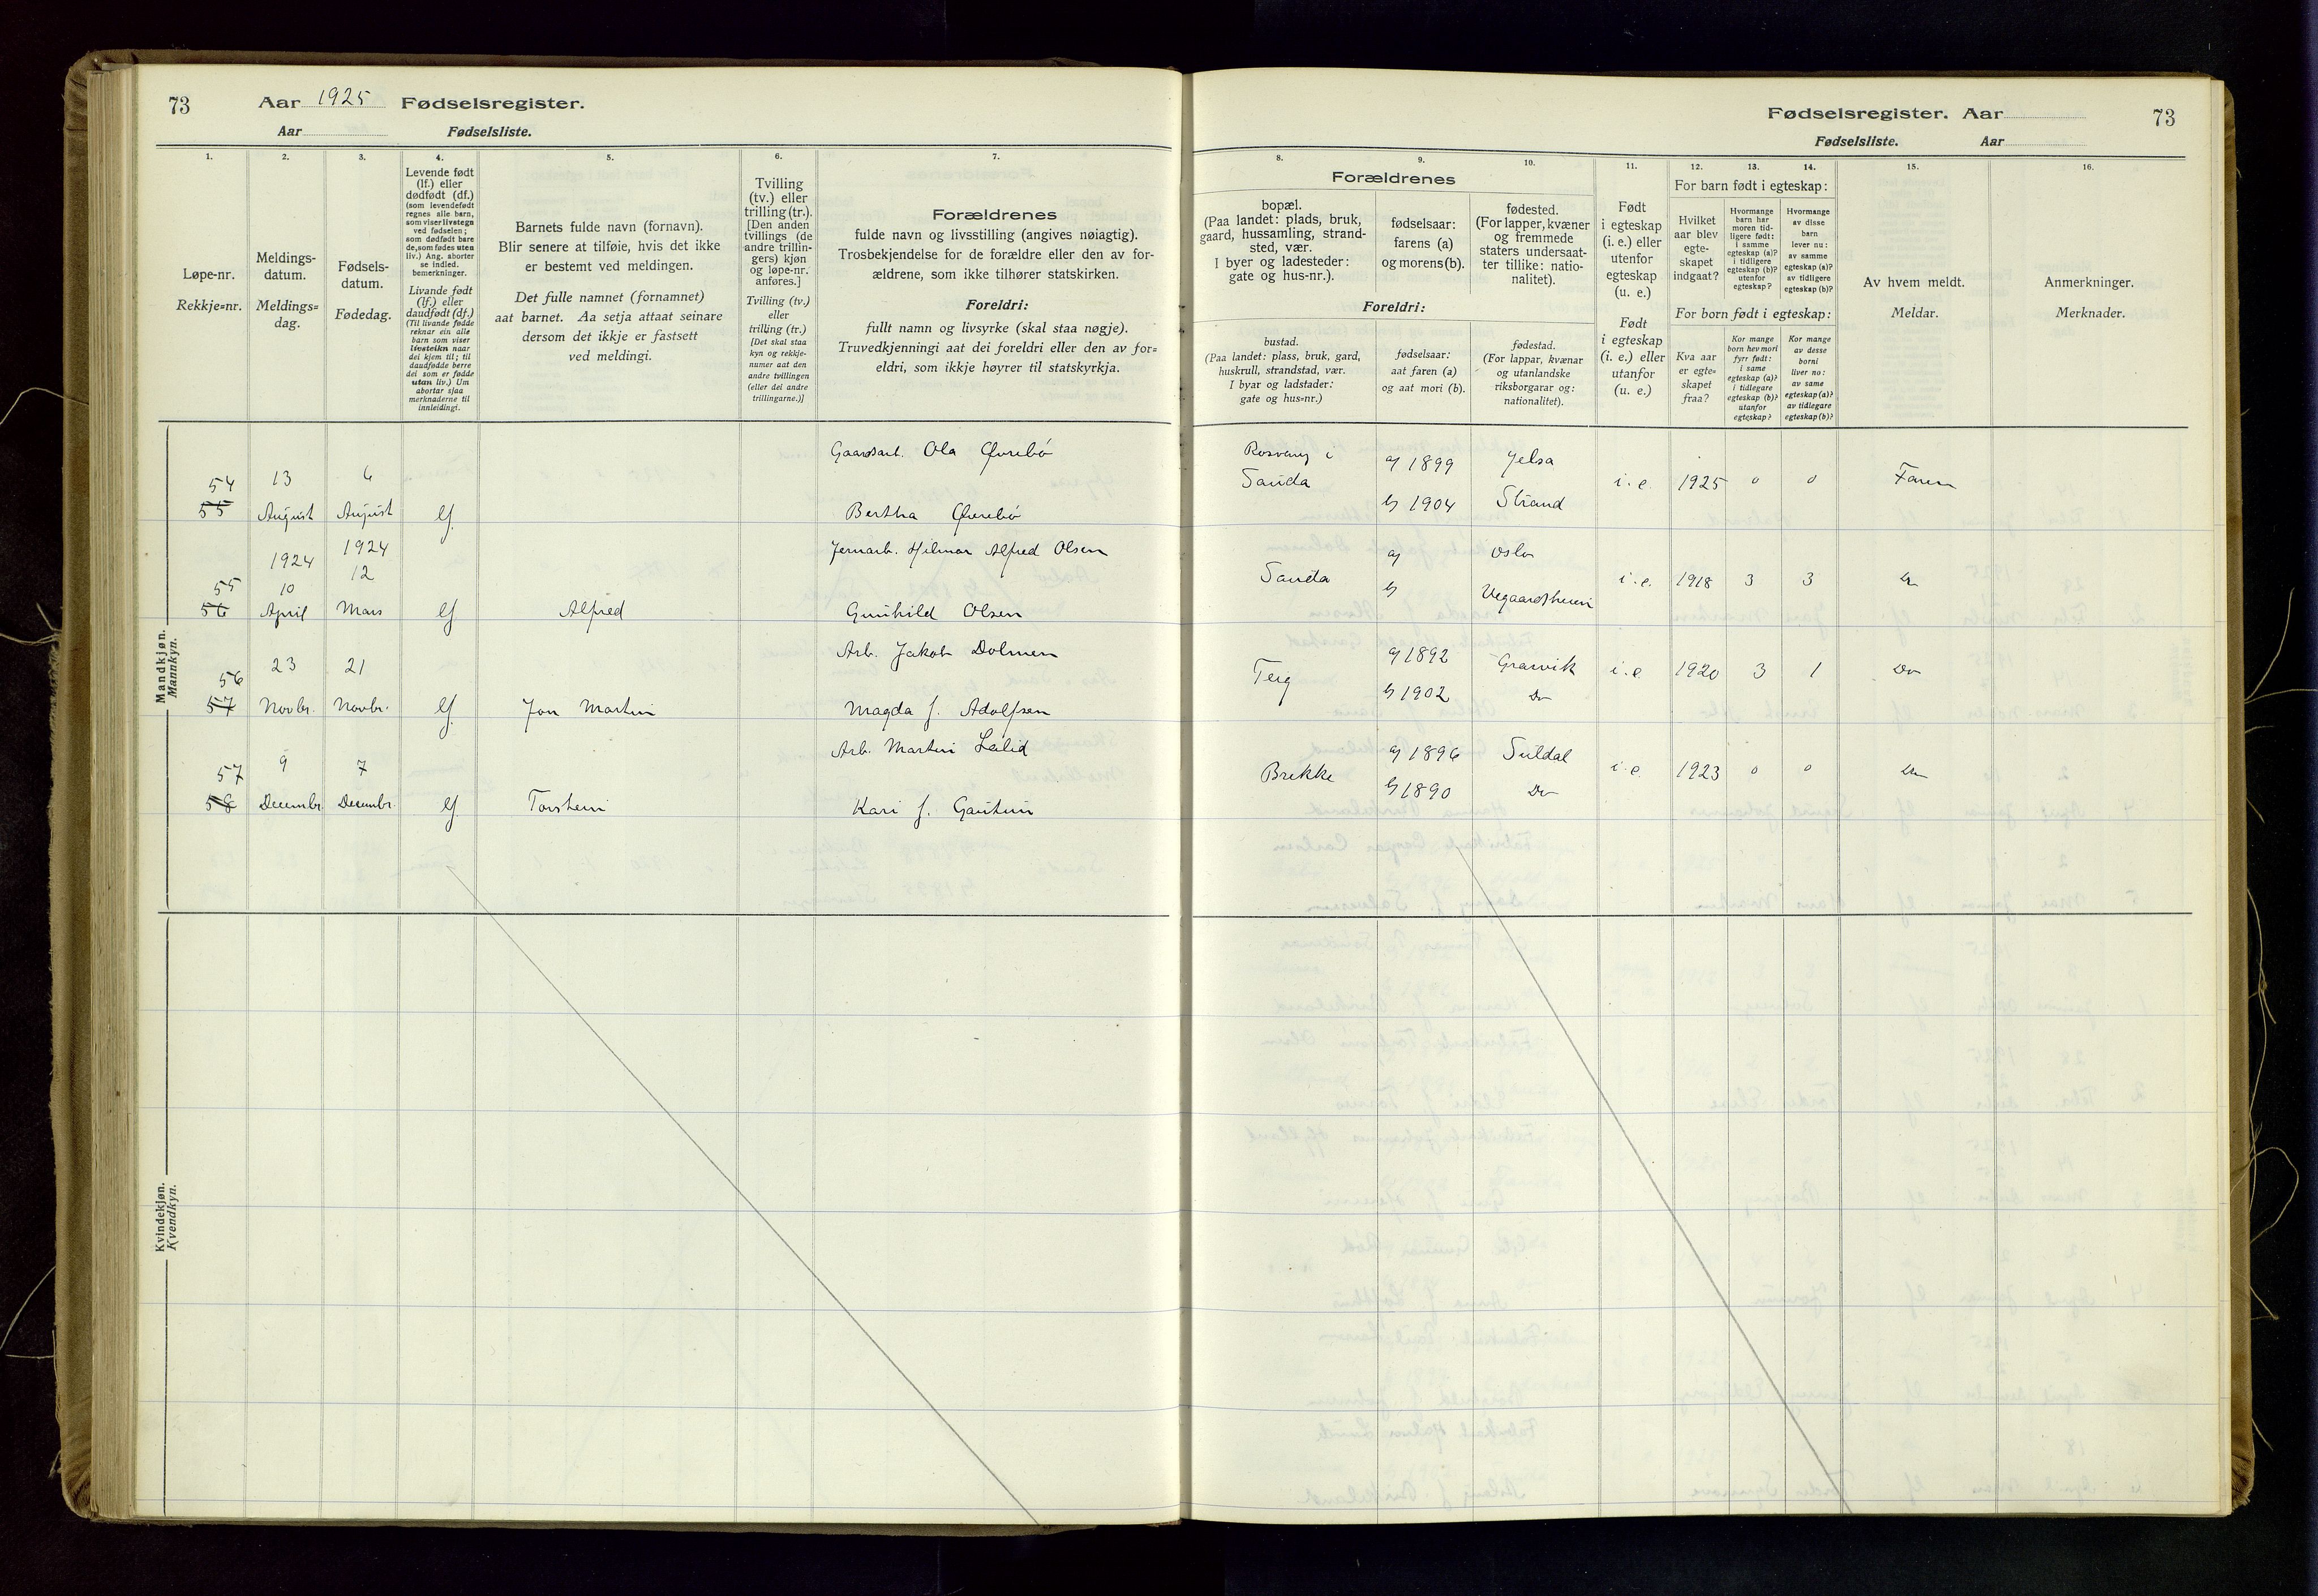 73 Aar 1925 Fødselsregister.
Aar Fødselsliste.
Fødselsregister. Aar 73
Fødselsliste. Aar
1. 2. 3. 4. 5. 6. 7. 8. 9. 10. 11. 12. 13. 14. 15. 16.
Løpe-nr.
Rekkje=nr.
Meldings-
datum.
Meldings=
dag.
Fødsels-
datum.
Fødedag.
Levende født
(lf.) eller
dødfødt (df.)
(som levendefødt
regnes alle barn,
som viser livstegn
ved fødselen;
som dødfødt bare
de, som fødes uten
liv.) Ang. aborter
se indled.
bemerkninger.
Livande født
(lf.) eller
daudfødt (df.)
(Til livande fødde
reknar ein alle
barn som viser
livsteikn naar
dei kjem til; til
daudfødde berre
dei som er fødde
utan liv.) Um
abortar sjaa
merknaderne til
innleidingi.
Barnets fulde navn (fornavn).
Blir senere at tilføie, hvis det ikke
er bestemt ved meldingen.
Det fulle namnet (fornamnet)
aat barnet. Aa setja attaat seinare
dersom det ikkje er fastsett
ved meldingi.
Tvilling
(tv.) eller
trilling (tr.).
[Den anden
tvillings (de
andre trillin-
gers) kjøn
og løpe-nr.
anføres.]
Tvilling (tv.)
eller
trilling (tr.)
[Det skal staa
kyn og rekkje-
numer aat den
andre tvillingen
(eller dei andre
trillingarne.)]
Forældrenes
fulde navn og livsstilling (angives nøiagtig).
Trosbekjendelse for de forældre eller den av for-
ældrene, som ikke tilhører statskirken.
Foreldri:
fullt namn og livsyrke (skal staa nøgje).
Truvedkjenningi aat dei foreldri eller den av for=
eldri, som ikkje høyrer til statskyrkja.
Forældrenes
bopæl.
(Paa landet: plads, bruk,
gaard, hussamling, strand-
sted, vær.
I byer og ladesteder:
gate og hus-nr.).
fødselsaar:
farens (a)
og morens (b).
fødested.
(For lapper, kvæner
og fremmede
staters undersaat-
ter tillike: natio-
nalitet).
Foreldri:
bustad.
(Paa landet: plass, bruk, gard,
huskrull, strandstad, vær.
I byar og ladstader:
gate og hus=nr.)
fødselsaar:
aat faren (a)
og aat mori (b).
fødestad.
(For lappar, kvænar
og utanlandske
riksborgarar og:
nationalitet).
Født
i egteskap
(i. e.) eller
utenfor
egteskap
(u. e.)
Født
i egteskap
(i. e.) eller
utanfor
(u. e.)
For barn født i egteskap:
Hvilket
aar blev
egte-
skapet
indgaat?
Hvormange
barn har
moren tid-
ligere født:
i samme
egteskap (a)?
i tidligere
egteskap (b)?
utenfor
egteskap?
Hvormange
av disse
barn
lever nu:
av samme
egteskap (a)?
av tidligere
egteskap (b)?
For born født i egteskap:
Kva aar
er egte=
skapet
fraa?
Kor mange
born hev mori
fyrr født:
i same
egteskap (a)?
i tidlegare
egteskap (b)?
utanfor
egteskap?
Kor mange
av desse
borni
liver no:
av same
egteskap (a)?
av tidlegare
egteskap (b)?
Av hvem meldt.
Meldar.
Anmerkninger.
Merknader.
Mandkjøn.
Mannkyn.
Gaardsarb. Ola Øvrebö
54 13 6 Sauda a) 1899 Jelsa i.e. 1925 0 0 Faren
55 August August lf. Bertha Øvrebö b) 1904 Strand
1924 1924 Jernarb. Hilmar Alfred Olsen a) Oslo
55 10 12 Sauda i.e. 1918 3 3 Do
56 April Mars lf Alfred Gunhild Olsen b)
Arb. Jakob Dolmen
56 23 21 Teig a) 1892 Granvik i.e. 1920 3 1 Do
57 Novbr. Novbr. lf Jon Martin Magda f. Adolfsen b) 1902 Do
Arb. Martin Lalid
57 9 7 Brekke a) 1896 Suldal i.e. 1923 0 0 Do
58 Decembr. Decembr. lf Torstein Kari f. Gautun b) 1890 Do
Kvindekjøn.
Kvendkyn.